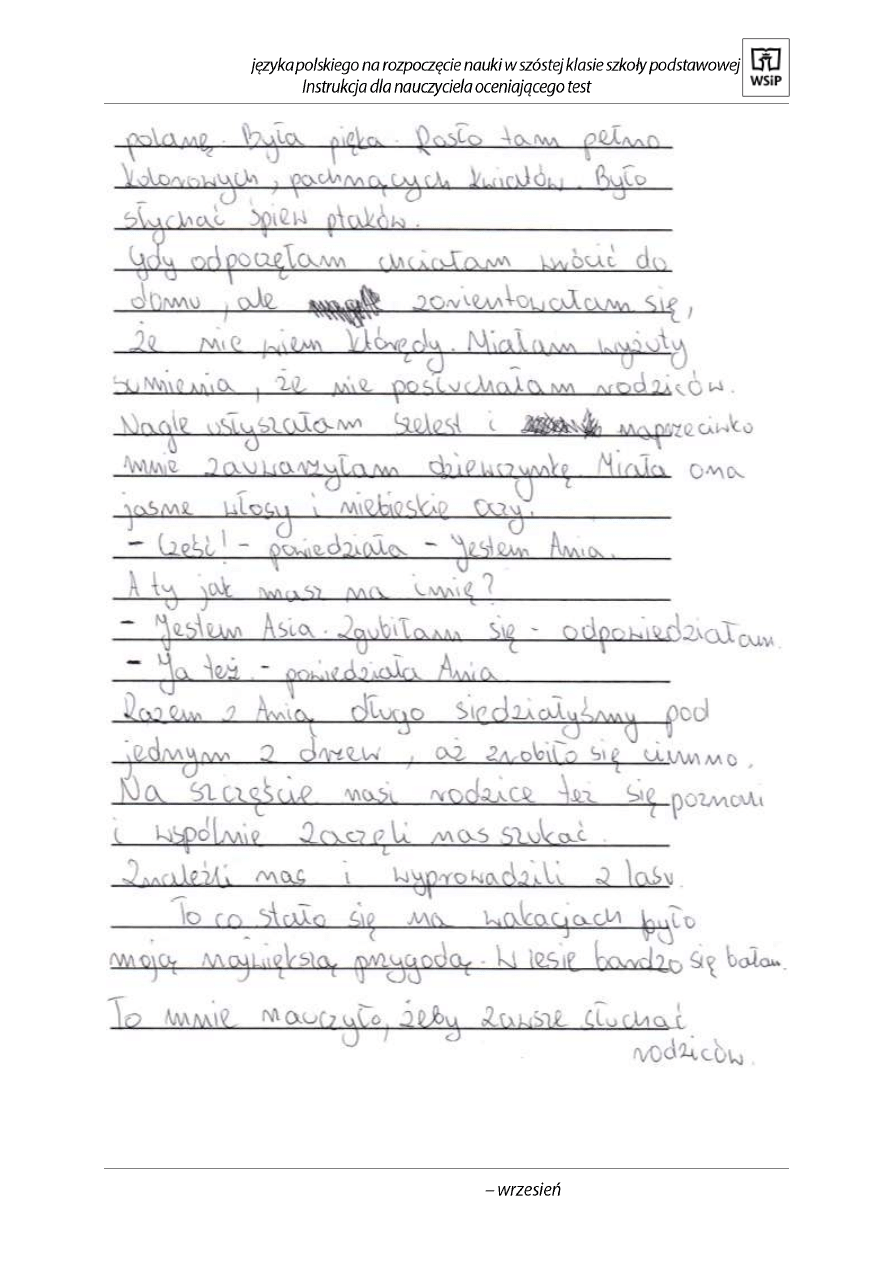 języka polskiego na rozpoczęcie nauki w szóstej klasie szkoły podstawowej
Instrukcja dla nauczyciela oceniającego test
WSiP
polanę. Była pięka. Rosło tam pełno
kolorowych, pachnących kwiatów. Było
słychać śpiew ptaków.
Gdy odpoczęłam chciałam wrócić do
domu, ale zorientowałam się,
że nie wiem którędy. Miałam wyżuty
sumienia, że nie posłuchałam rodziców.
Nagle usłyszałam szelest i naprzeciwko
mnie zauważyłam dziewczynkę. Miała ona
jasne włosy i niebieskie oczy.
- Cześć! - powiedziała - Jestem Ania.
A ty jak masz na imię?
- Jestem Asia. Zgubiłam się - odpowiedziałam.
- Ja też. - powiedziała Ania
Razem z Anią długo siedziałyśmy pod
jednym z drzew, aż zrobiło się ciemno.
Na szczęście nasi rodzice też się poznali
i wspólnie zaczęli nas szukać.
Znaleźli nas i wyprowadzili z lasu.
To co stało się na wakacjach było
moją największą przygodą. W lesie bardzo się bałam.
To mnie nauczyło, żeby zawsze słuchać
rodziców.
– wrzesień